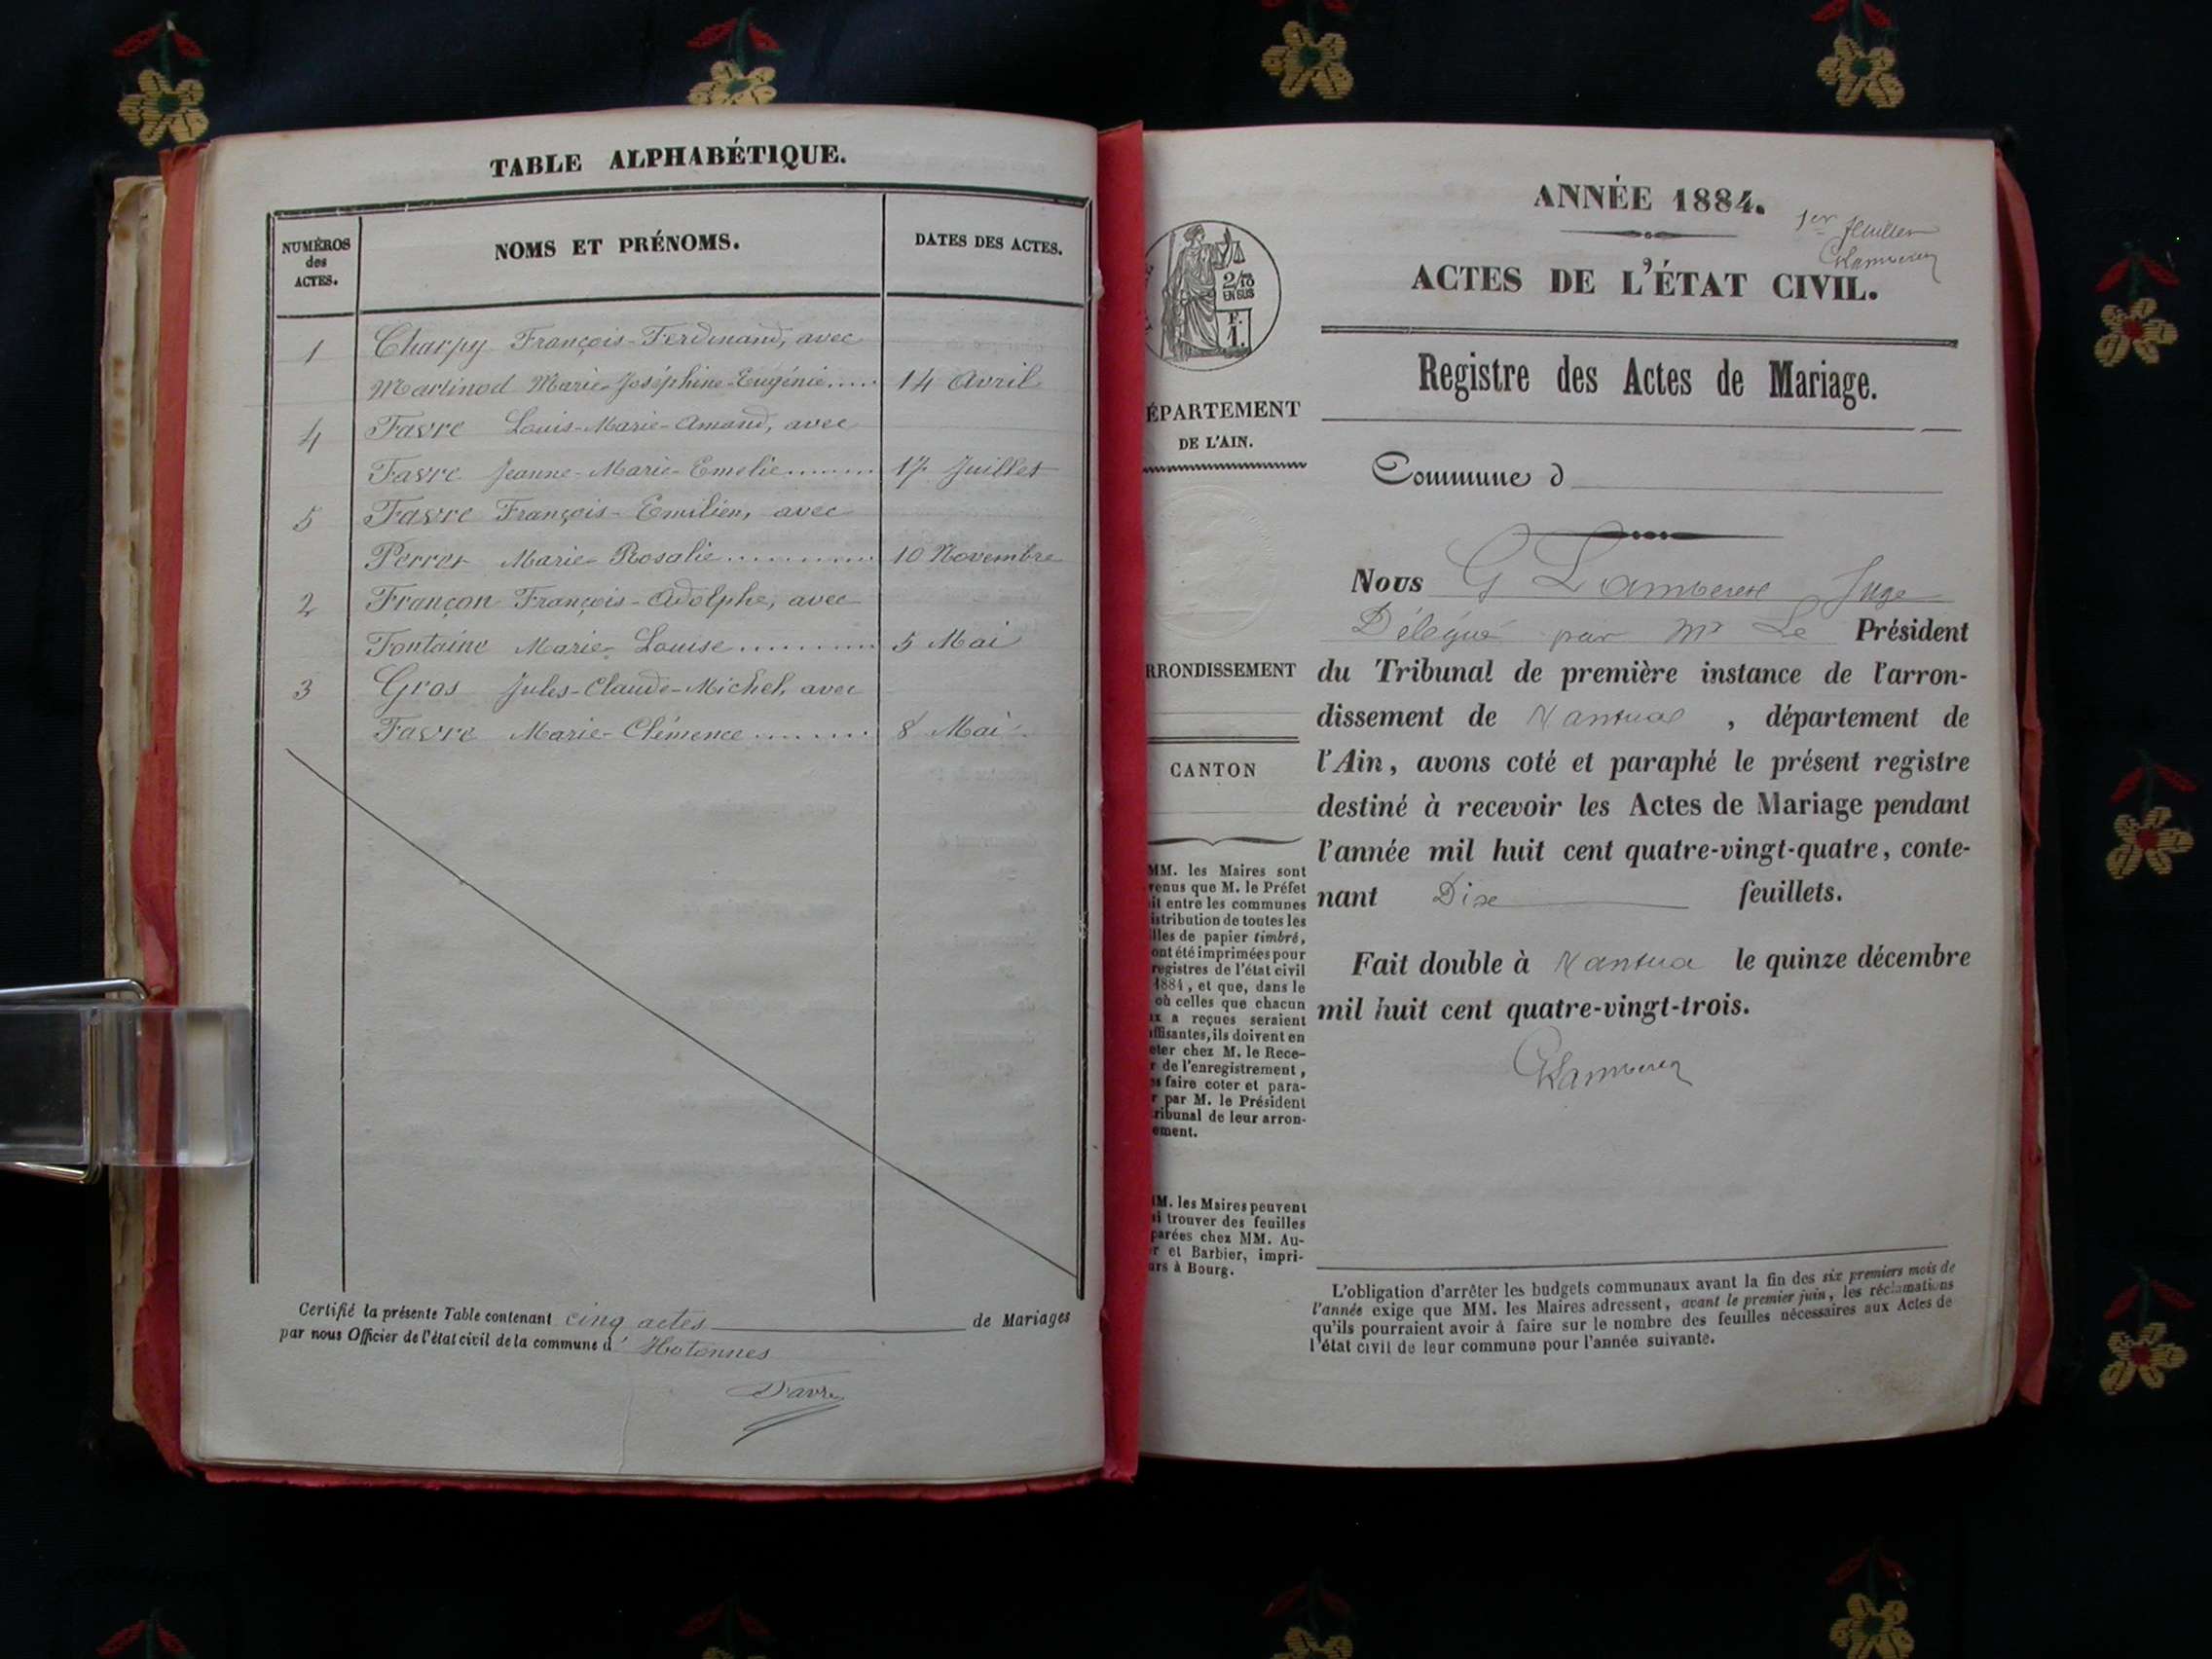 TABLE ALPHABÉTIQUE.
NUMÉROS des ACTES.
NOMS ET PRÉNOMS.
DATES DES ACTES.
1 Charpy François-Ferdinand, avec
Martinod Marie-Joséphine-Eugénie..... 14 Avril
4 Favre Louis-Marie-Amand, avec
Favre Jeanne-Marie-Emelie......... 17 Juillet
5 Favre François-Emilien, avec
Perret Marie-Rosalie.............. 10 Novembre
2 Françon François-Adolphe, avec
Fontaine Marie-Louise............. 5 Mai
3 Gros Jules-Claude-Michel, avec
Favre Marie-Clémence......... 8 Mai
Certifié la présente Table contenant cinq actes de Mariages
par nous Officier de l'état civil de la commune d'Hotonnes
Favre
ANNÉE 1884.
1er feuillet
ACTES DE L'ÉTAT CIVIL.
2/10
EN SUS
F.
1.
Registre des Actes de Mariage.
ÉPARTEMENT
DE L'AIN.
Commune d
Nous G Lamberet Juge
Délégué par Mr Le Président
RRONDISSEMENT
du Tribunal de première instance de l'arron-
dissement de Nantua, département de
CANTON
l'Ain, avons coté et paraphé le présent registre
destiné à recevoir les Actes de Mariage pendant
l'année mil huit cent quatre-vingt-quatre, conte-
nant Dix feuillets.
Fait double à Nantua le quinze décembre
mil huit cent quatre-vingt-trois.
GLamberet
MM. les Maires sont
venus que M. le Préfet
it entre les communes
istribution de toutes les
lles de papier timbré,
ont été imprimées pour
registres de l'état civil
1884, et que, dans le
où celles que chacun
ux a reçues seraient
ffisantes, ils doivent en
eter chez M. le Rece-
r de l'enregistrement,
es faire coter et para-
r par M. le Président
ribunal de leur arron-
ement.
MM. les Maires peuvent
si trouver des feuilles
parées chez MM. Au-
r et Barbier, impri-
urs à Bourg.
L'obligation d'arrêter les budgets communaux avant la fin des six premiers mois de
l'année exige que MM. les Maires adressent, avant le premier juin, les réclamations
qu'ils pourraient avoir à faire sur le nombre des feuilles nécessaires aux Actes de
l'état civil de leur commune pour l'année suivante.